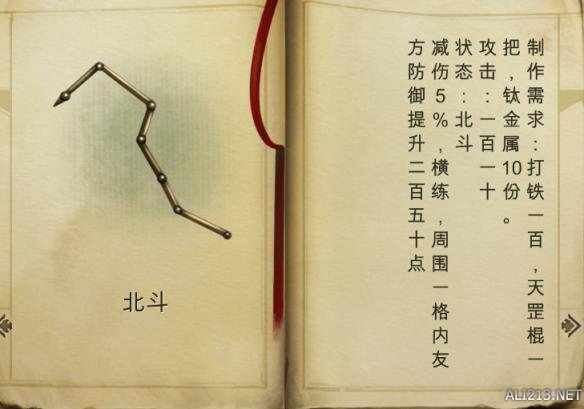 北斗
制作需求：打铁一百，天罡棍一
把，钛金属10份。
攻击：一百一十
状态：北斗
减伤5%，横练，周围一格内友
方防御提升二百五十点
ALI213.NET